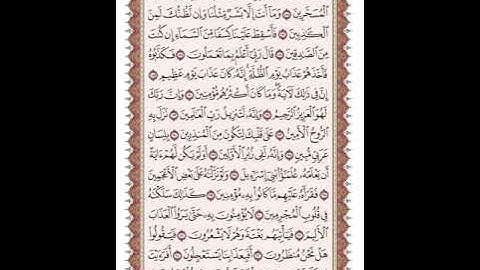 ٱلْمُسَحَّرِينَ ۝ وَمَآ أَنتَ إِلَّا بَشَرٌ مِّثْلُنَا وَإِن نَّظُنُّكَ لَمِنَ
ٱلْكَٰذِبِينَ ۝ فَأَسْقِطْ عَلَيْنَا كِسَفًا مِّنَ ٱلسَّمَآءِ إِن كُنتَ
مِنَ ٱلصَّٰدِقِينَ ۝ قَالَ رَبِّىٓ أَعْلَمُ بِمَا تَعْمَلُونَ ۝ فَكَذَّبُوهُ
فَأَخَذَهُمْ عَذَابُ يَوْمِ ٱلظُّلَّةِ ۚ إِنَّهُۥ كَانَ عَذَابَ يَوْمٍ عَظِيمٍ ۝
إِنَّ فِى ذَٰلِكَ لَءَايَةً ۖ وَمَا كَانَ أَكْثَرُهُم مُّؤْمِنِينَ ۝ وَإِنَّ رَبَّكَ
لَهُوَ ٱلْعَزِيزُ ٱلرَّحِيمُ ۝ وَإِنَّهُۥ لَتَنزِيلُ رَبِّ ٱلْعَٰلَمِينَ ۝ نَزَلَ بِهِ
ٱلرُّوحُ ٱلْأَمِينُ ۝ عَلَىٰ قَلْبِكَ لِتَكُونَ مِنَ ٱلْمُنذِرِينَ ۝ بِلِسَانٍ
عَرَبِىٍّ مُّبِينٍ ۝ وَإِنَّهُۥ لَفِى زُبُرِ ٱلْأَوَّلِينَ ۝ أَوَلَمْ يَكُن لَّهُمْ ءَايَةً
أَن يَعْلَمَهُۥ عُلَمَٰٓؤُا۟ بَنِىٓ إِسْرَٰٓءِيلَ ۝ وَلَوْ نَزَّلْنَٰهُ عَلَىٰ بَعْضِ ٱلْأَعْجَمِينَ
۝ فَقَرَأَهُۥ عَلَيْهِم مَّا كَانُوا۟ بِهِۦ مُؤْمِنِينَ ۝ كَذَٰلِكَ سَلَكْنَٰهُ
فِى قُلُوبِ ٱلْمُجْرِمِينَ ۝ لَا يُؤْمِنُونَ بِهِۦ حَتَّىٰ يَرَوُا۟ ٱلْعَذَابَ
ٱلْأَلِيمَ ۝ فَيَأْتِيَهُم بَغْتَةً وَهُمْ لَا يَشْعُرُونَ ۝ فَيَقُولُوا۟
هَلْ نَحْنُ مُنظَرُونَ ۝ أَفَبِعَذَابِنَا يَسْتَعْجِلُونَ ۝ أَفَرَءَيْتَ